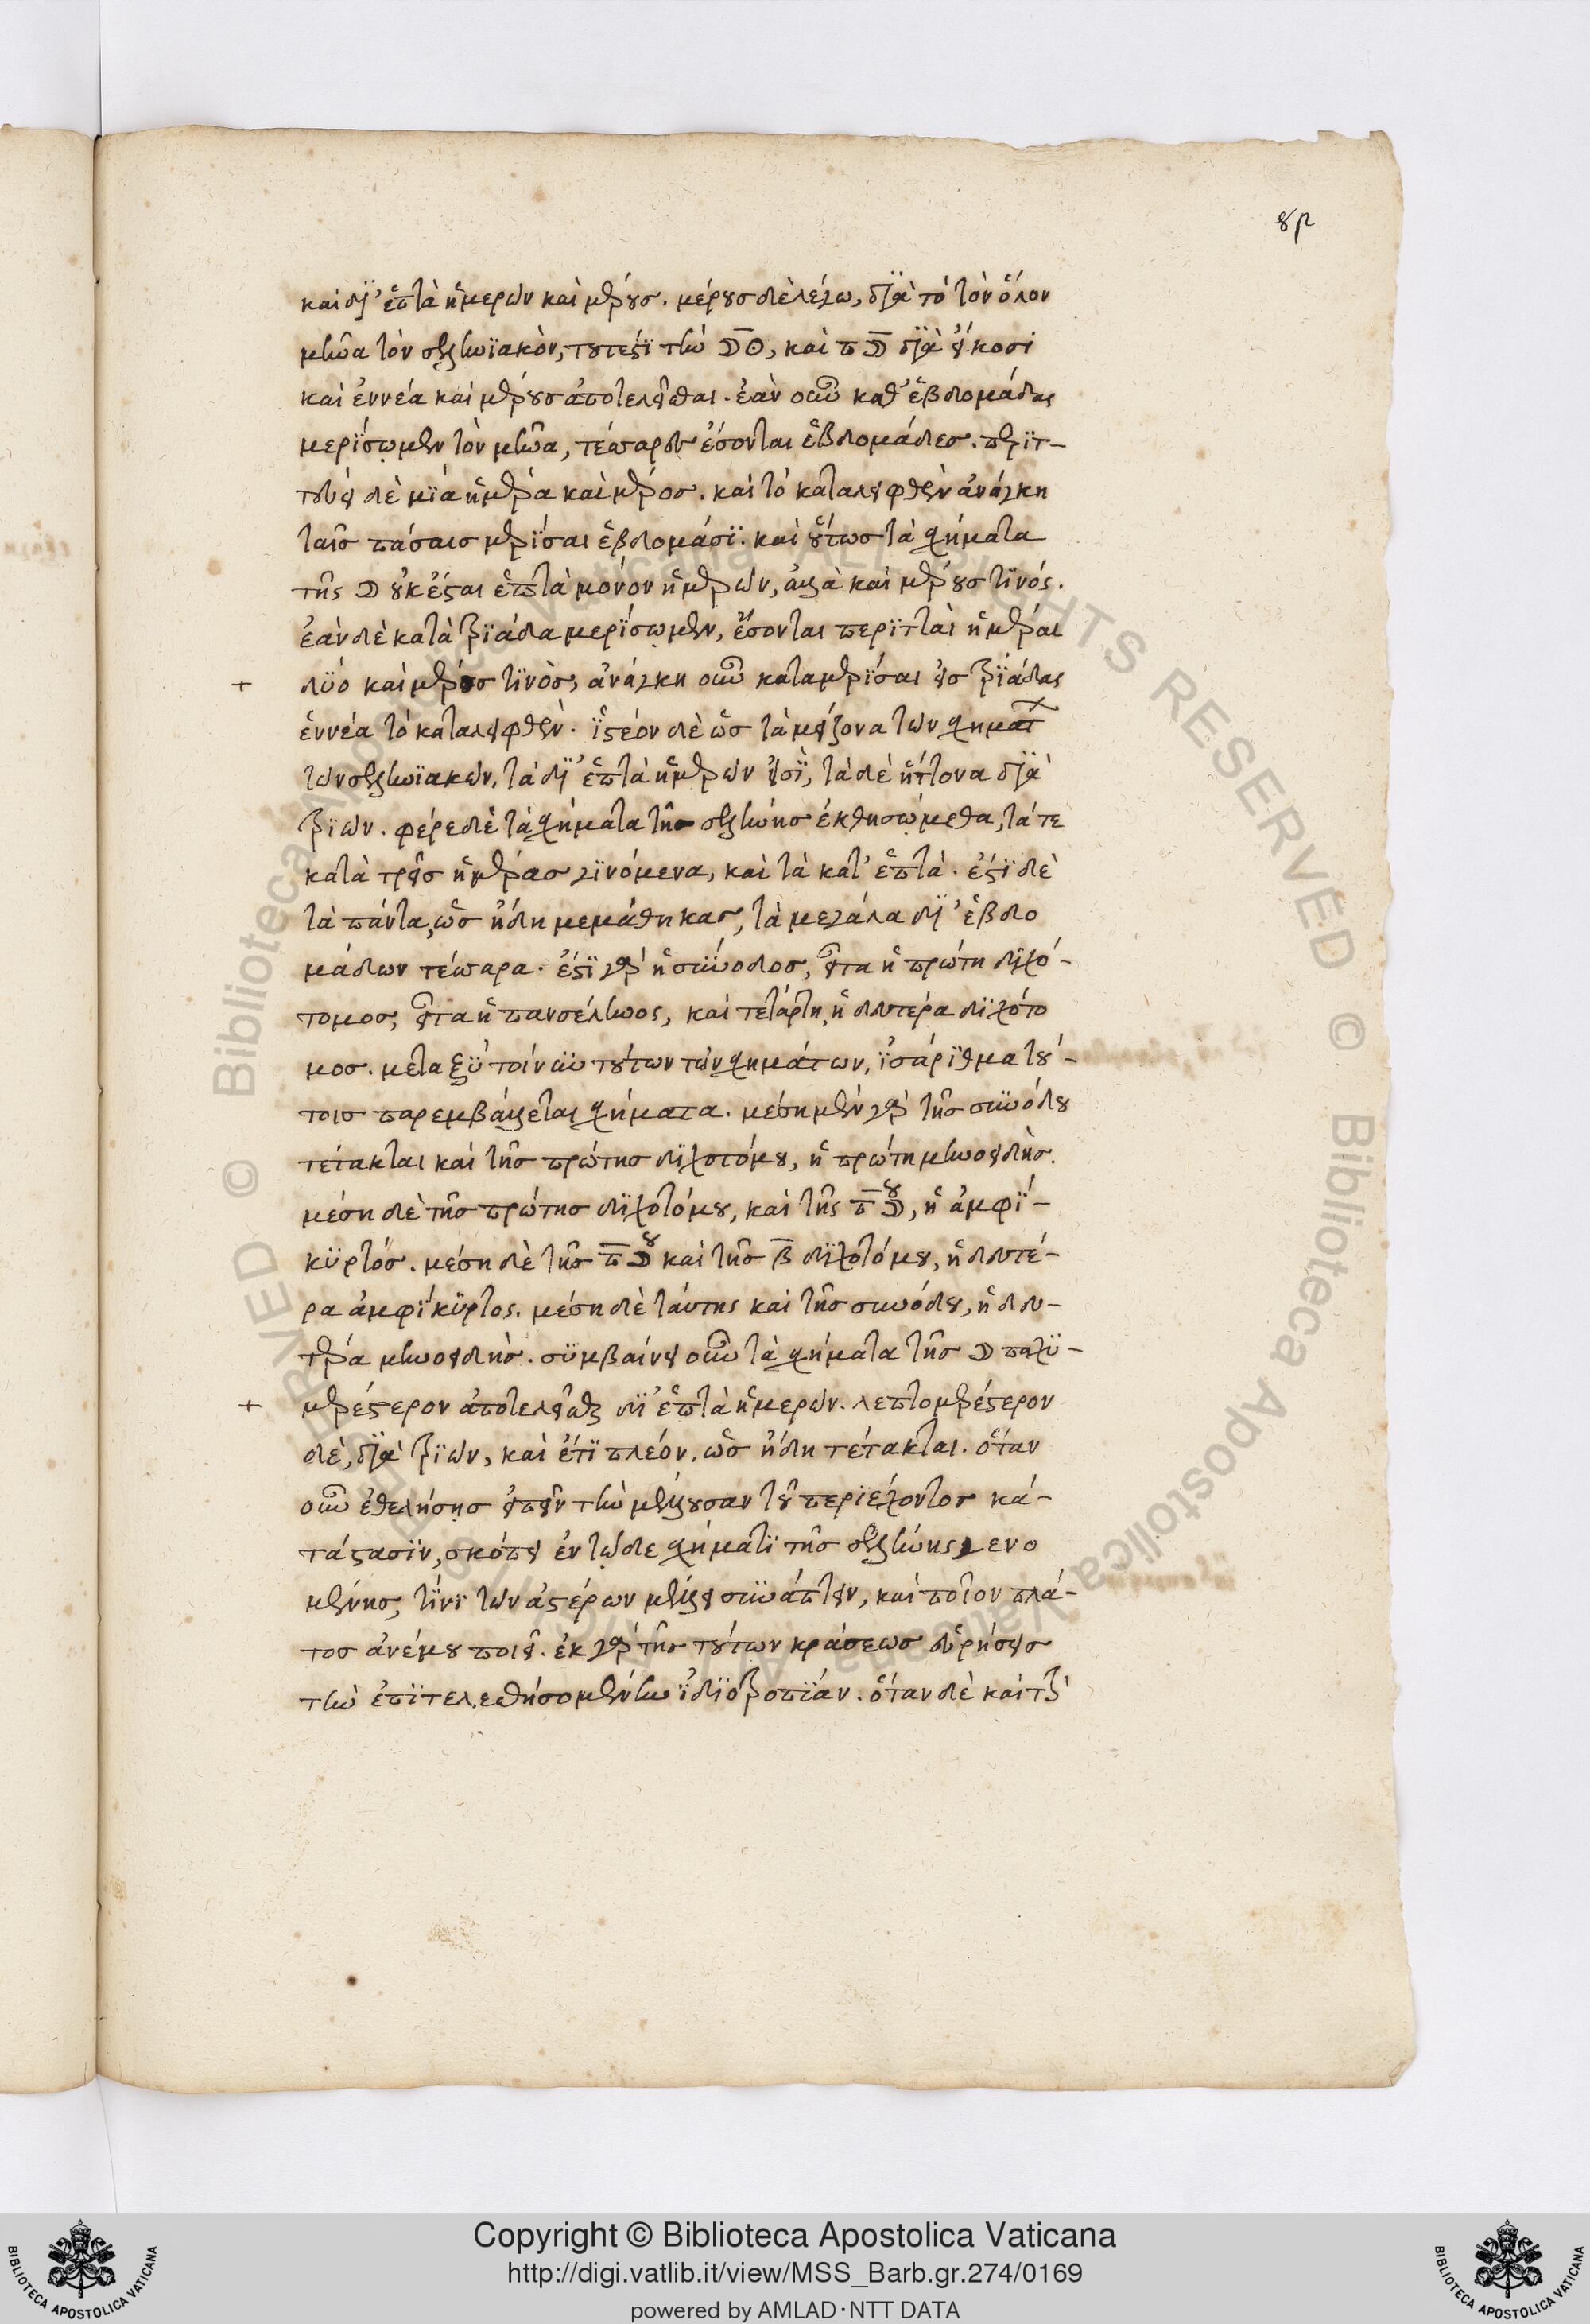 82
καὶ δϊ' ἑπτὰ ἡμερῶν καὶ μέρους. μέρους δὲ λέγω, δϊὰ τὸ τὸν ὅλον
μῆνα τὸν σεληνϊακὸν, τουτέστϊ τὴν ☽☉, καὶ π☽ δϊὰ εἴκοσι
καὶ ἐννέα καὶ μέρους ἀποτελεῖσθαι. ἐὰν οὖν καθ' ἑβδομάδας
μερϊσωμεν τὸν μῆνα, τέσσαρες ἔσονται ἑβδομάδες. περϊτ-
τεύει δὲ μϊά ἡμέρα καὶ μέρος. καὶ τὸ καταλειφθὲν ἀνάγκη
ταῖς πάσαις μερϊσαι ἑβδομάσϊ. καὶ οὕτως τὰ σχήματα
τῆς ☽ οὐκ ἔσται ἑπτὰ μόνον ἡμερῶν, ἀλλὰ καὶ μέρους τϊνός.
ἐὰν δὲ κατὰ τρϊάδα μερϊσωμεν, ἔσονται περϊτταὶ ἡμέραι
δϋο καὶ μέρος τϊνὸς, ἀνάγκη οὖν καταμερϊσαι εἰς τρϊάδας
ἐννέα τὸ καταλειφθέν. ϊστέον δὲ ὡς τὰ μείζονα τῶν σχημάτ
τῶν σεληνϊακῶν, τὰ δϊ' ἑπτὰ ἡμερῶν εἰσϊ, τὰ δὲ ἥττονα δϊὰ
τρϊῶν. φέρε δὲ τὰ σχήματα τῆς σελήνης ἐκθησώμεθα, τά τε
κατὰ τρεῖς ἡμέρας γϊνόμενα, καὶ τὰ κατ' ἑπτά. ἔστϊ δὲ
τὰ πάντα, ὡς ἤδη μεμάθηκας, τὰ μεγάλα δϊ' ἑβδο
μάδων τέσσαρα. ἔστϊ γὰρ ἡ σύνοδος, εἶτα ἡ πρώτη δϊχό-
τομος, εἶτα ἡ πανσέληνος, καὶ τετάρτη, ἡ δευτέρα δϊχότο
μος. μεταξϋ τοίνυν τούτων τῶν σχημάτων, ϊσάρϊθμα τού-
τοις παρεμβάλλεται σχήματα. μέση μὲν γὰρ τῆς συνόδου
τέτακται καὶ τῆς πρώτης δϊχοτόμου, ἡ πρώτη μηνοειδής.
μέση δὲ τῆς πρώτης δϊχοτόμου, καὶ τῆς π☽ου, ἡ ἀμφϊ-
κϋρτός. μέση δὲ τῆς π☽ου καὶ τῆς β δϊχοτόμου, ἡ δευτέ-
ρα ἀμφϊκϋρτος. μέση δὲ ταύτης καὶ τῆς συνόδου, ἡ δευ-
τέρα μηνοειδής. σϋμβαίνει οὖν τὰ σχήματα τῆς ☽ παχϋ-
μερέστερον ἀποτελεῖσθαι δϊ' ἑπτὰ ἡμερῶν. λεπτομερέστερον
δὲ, δϊὰ τρϊῶν, καὶ ἔτϊ πλέον, ὡς ἤδη τέτακται. ὅταν
οὖν ἐθελήσης εἰπεῖν τὴν μέλλουσαν τοῦ περϊέχοντος κα-
τάστασϊν, σκόπει ἐν τῷδε σχήματϊ τῆς σελήνης γενο
μένης, τϊνϊ τῶν ἀστέρων μέλλει συνάπτειν, καὶ ποῖον πλά-
τος ἀνέμου ποιεῖ. ἐκ γὰρ τῆς τούτων κράσεως εὑρήσεις
τὴν ἐπϊτελεσθησομένην ϊδϊοτροπϊαν. ὅταν δὲ καὶ τρ
Copyright © Biblioteca Apostolica Vaticana
http://digi.vatlib.it/view/MSS_Barb.gr.274/0169
powered by AMLAD·NTT DATA